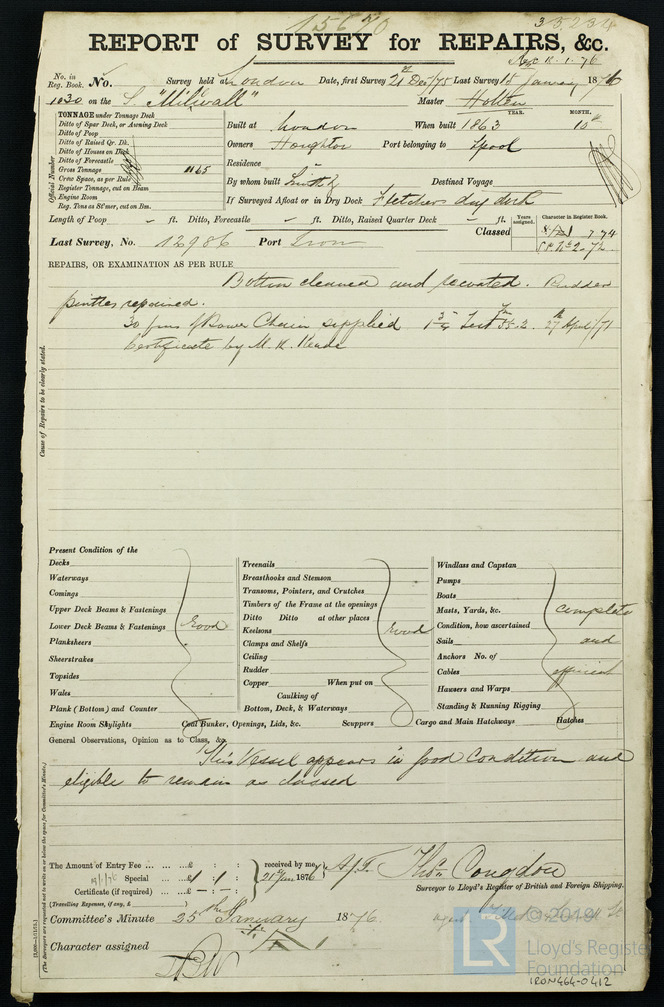 15670
33234
REPORT of SURVEY for REPAIRS, &c.
Rec 18.1.76
No. in Reg. Book. No. Survey held at London Date, first Survey 21st Dec/75 Last Survey 15 January 1876
1030 on the S. "Millwall" Master Holten
TONNAGE under Tonnage Deck
Ditto of Spar Deck, or Awning Deck
Ditto of Poop
Ditto of Raised Qr. Dk.
Ditto of Houses on Dk.
Ditto of Forecastle
Gross Tonnage 1165
Crew Space, as per Rule
Register Tonnage, cut on Beam
Engine Room
Reg. Tons as St'mer, cut on Bm.
Official Number
YEAR. MONTH.
Built at London When built 1863 10th
Owners Houghton Port belonging to Lpool
Residence
By whom built Destined Voyage
If Surveyed Afloat or in Dry Dock Fletchers dry dock
Length of Poop - ft. Ditto, Forecastle - ft. Ditto, Raised Quarter Deck - ft.
Classed
Years assigned. Character in Register Book.
7.74
Last Survey, No. 12986 Port Iron
REPAIRS, OR EXAMINATION AS PER RULE
Bottom cleaned and recoated. Rudder
pintles repaired.
30 fms of Bower Chain supplied Test 27th April/71
Certificate by M. K.
Cause of Repairs to be clearly stated.
Present Condition of the
Decks
Waterways
Comings
Upper Deck Beams & Fastenings
Lower Deck Beams & Fastenings
Planksheers
Sheerstrakes
Topsides
Wales
Plank (Bottom) and Counter
Good
Treenails
Breasthooks and Stemson
Transoms, Pointers, and Crutches
Timbers of the Frame at the openings
Ditto Ditto at other places
Keelsons
Clamps and Shelfs
Ceiling
Rudder
Copper When put on
Caulking of
Bottom, Deck, & Waterways
Good
Windlass and Capstan
Pumps
Boats
Masts, Yards, &c.
Condition, how ascertained
Sails
Anchors No. of
Cables
Hawsers and Warps
Standing & Running Rigging
complete
and
efficient
Engine Room Skylights Coal Bunker, Openings, Lids, &c. Scuppers Cargo and Main Hatchways Hatches
General Observations, Opinion as to Class, &c.
This Vessel appears in good Condition and
eligible to remain as classed
The Amount of Entry Fee ... ... ...£ : :
Special ...£1 : 1 :
Certificate (if required) ... ...£ - : - :
(Travelling Expenses, if any, £ )
received by me,
21st Jan 1876
Thos. Congdon
Surveyor to Lloyd's Register of British and Foreign Shipping.
Committee's Minute 25th January 1876
Character assigned
(The Surveyors are requested not to write on or below the space for Committee's Minute.)
LR
© 2019
Lloyd's Register
Foundation
IRON464-0412